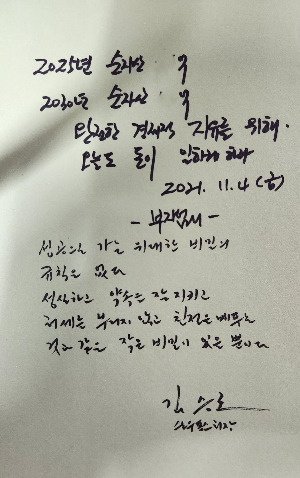 2025년 순자산 억
2030년 순자산 억
완전한 경제적 자유를 위해.
오늘도 돈이 일하게 하라
2021. 11. 4 (금)
- 부자엄마 -
성공으로 가는 위대한 비밀의
규칙은 없다
성실하고 약속은 잘 지키고
허세는 부리지 않고 친절을 베푸는
것과 같은 작은 비밀이 있을 뿐이다
김승호
스노우폭스 회장